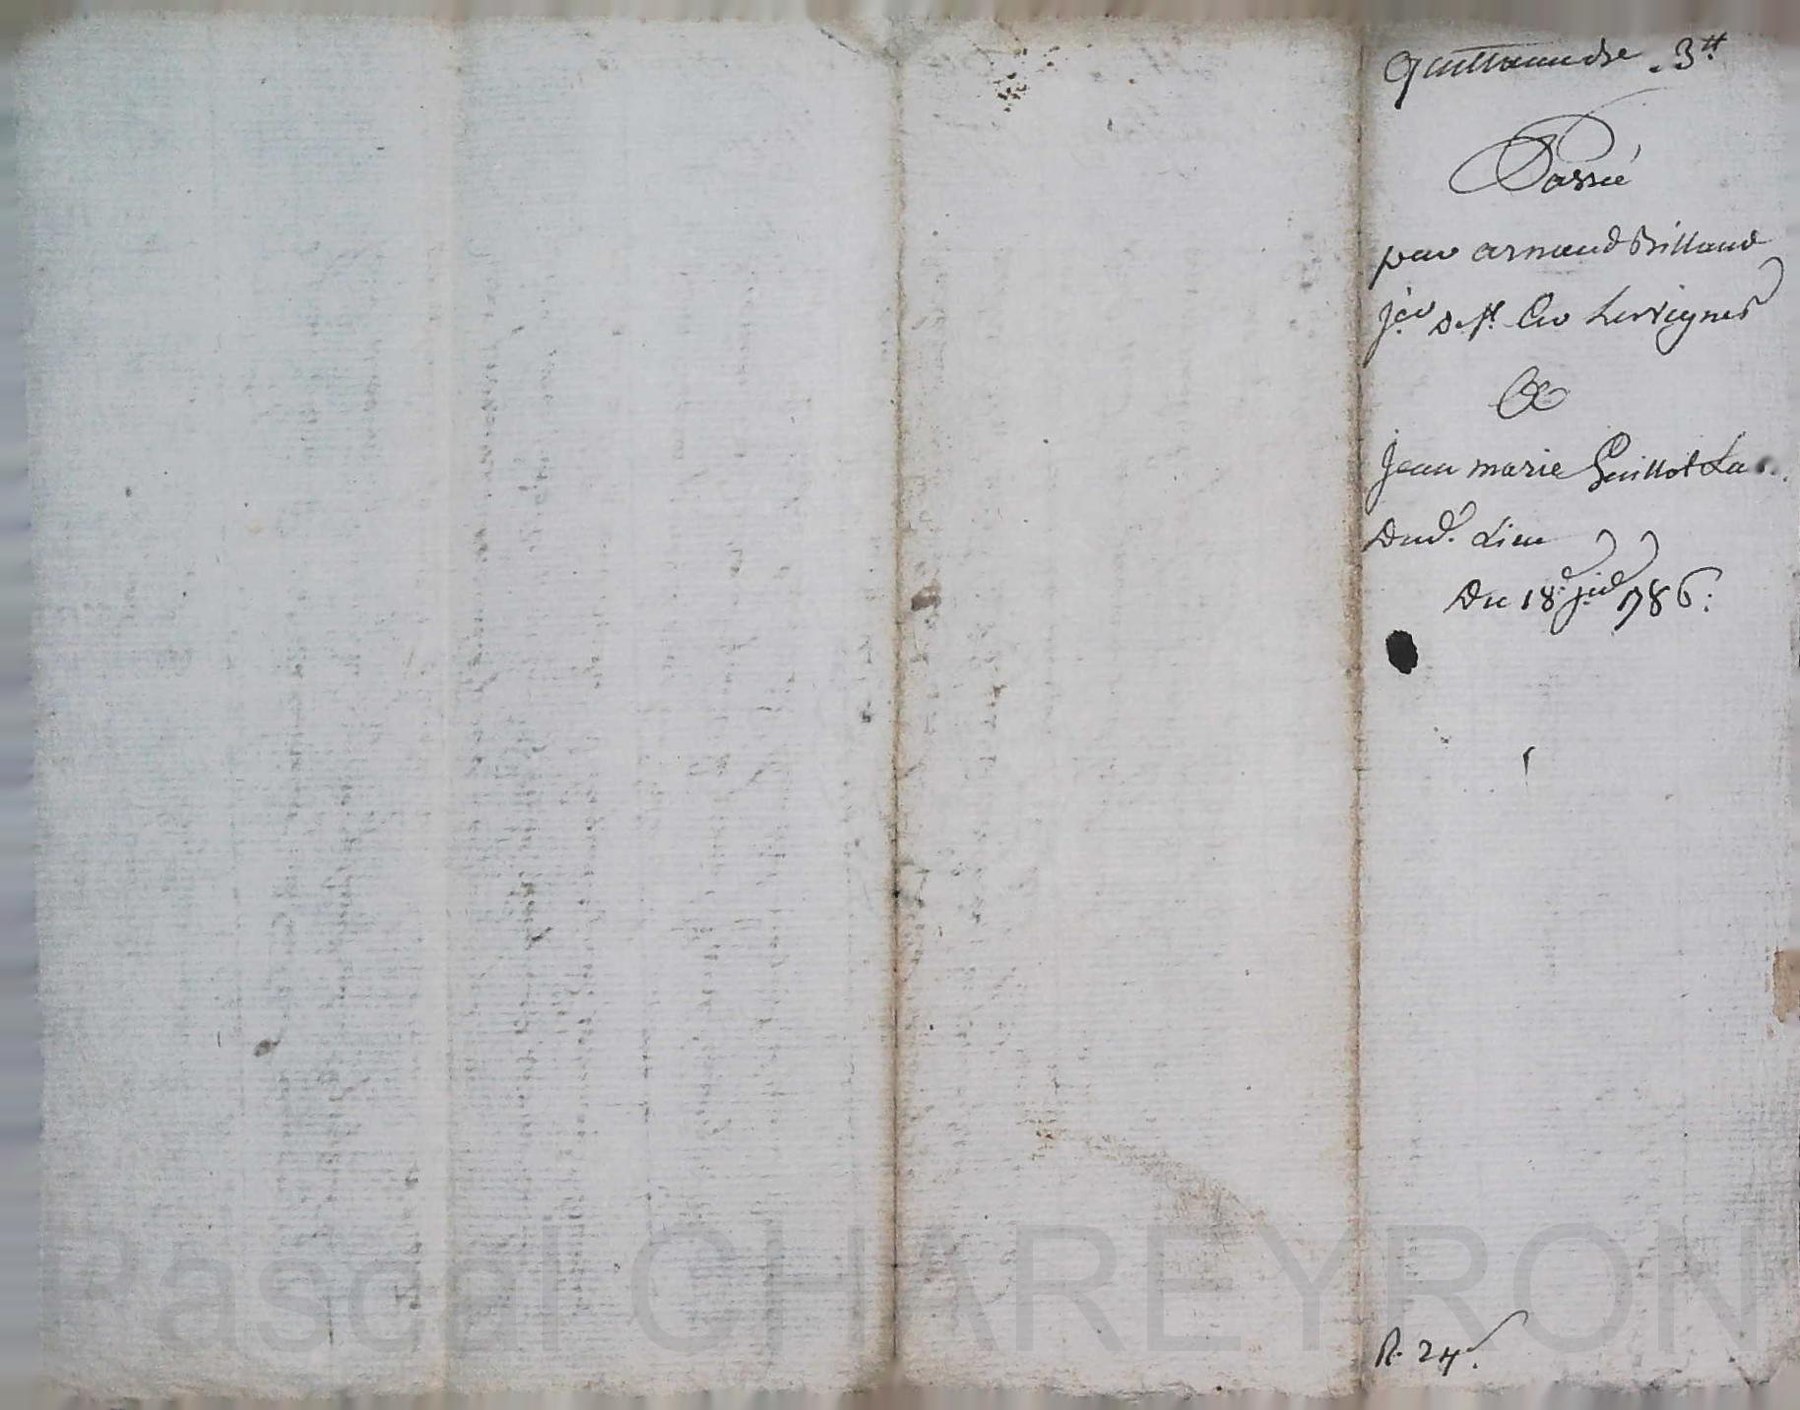 Guillaumche . 3.tt
Passée
par arnaud Billaud
j.er De St. Cir Les Vignes
&
jean marie Guillot La
Dud. Lieu
Du 18.e j.er 1786.
R. 24.
Pascal CHAREYRON